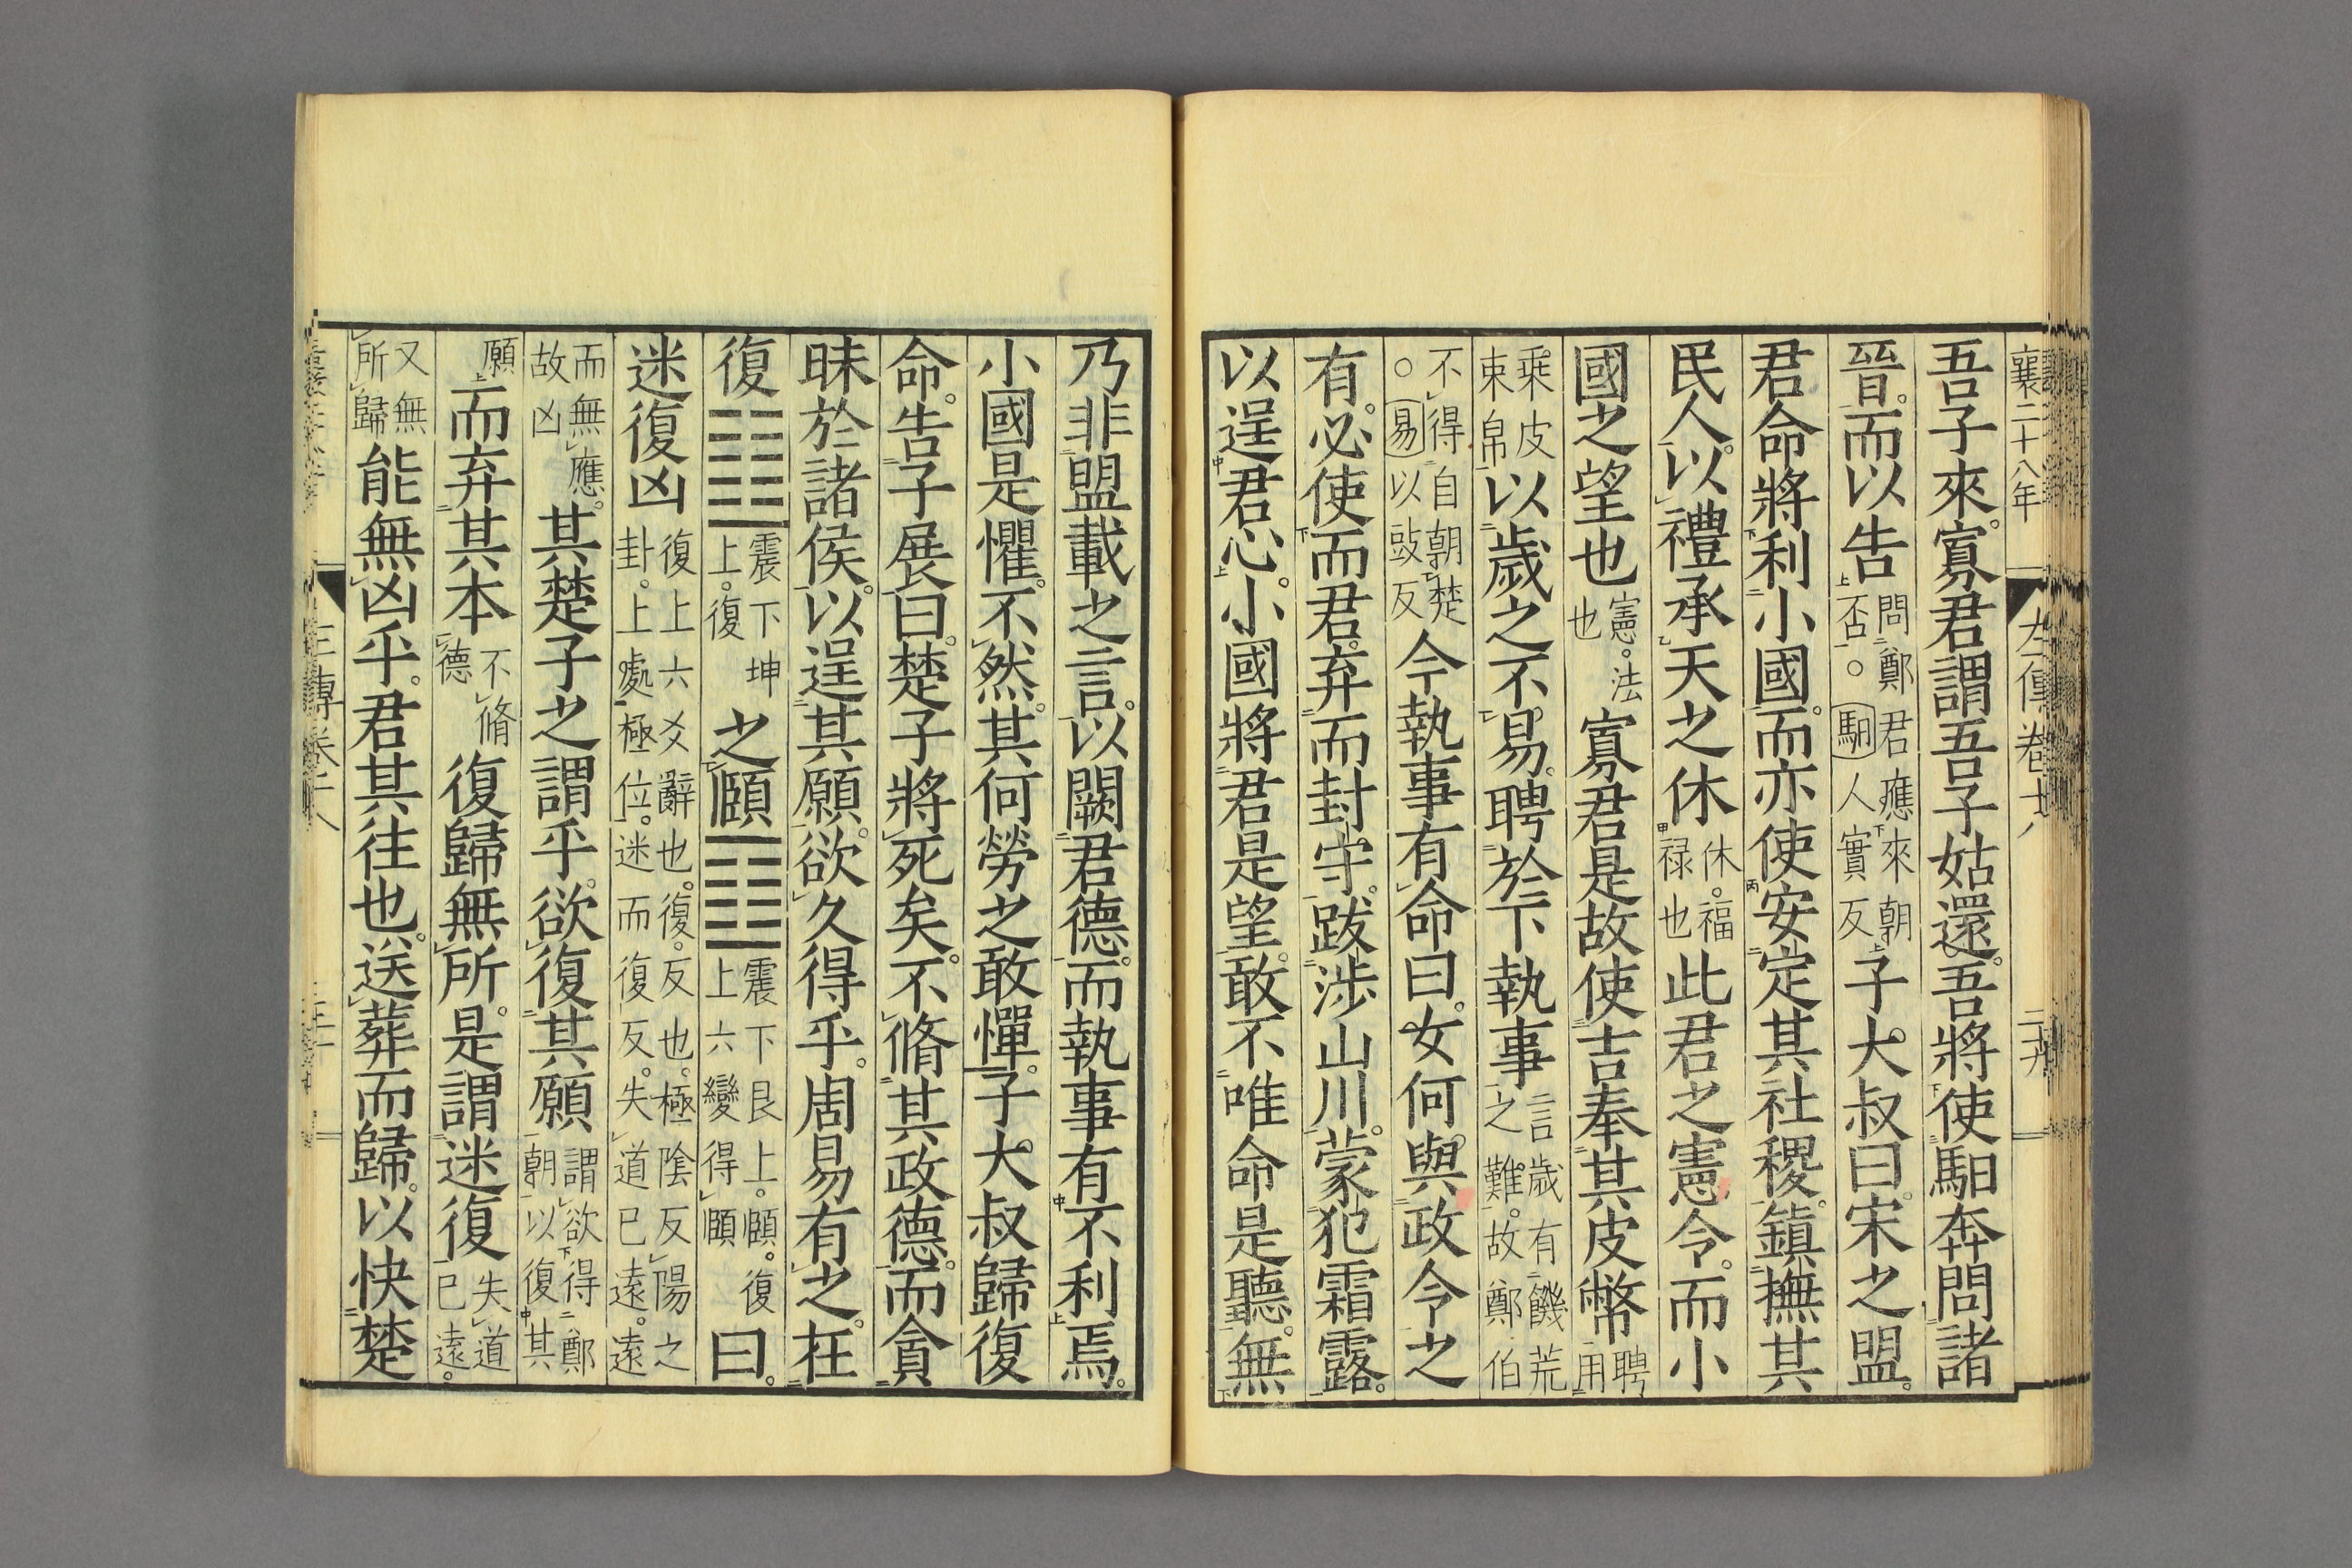 襄二十八年
吾子來。寡君謂吾子姑還。吾將使馹奔問諸
晉。而以告問鄭君應來朝否。○馹人實反子大叔曰。宋之盟。
君命將利小國。而亦使安定其社稷。鎮撫其
民人。以禮承天之休休。福禄也此君之憲令。而小
國之望也憲。法也寡君是故使吉奉其皮幣聘用
乘皮束帛以歲之不易。聘於下執事言歲有饑荒之難。故鄭伯
不得自朝楚○易以豉反今執事有命曰。女何與政令之
有。必使而君。弃而封守。跋涉山川。蒙犯霜露。
以逞君心。小國將君是望。敢不唯命是聽。無
乃非盟載之言。以闕君德。而執事有不利焉。
小國是懼。不然。其何勞之敢憚。子大叔歸復
命。告子展曰。楚子將死矣。不脩其政德。而貪
昧於諸侯。以逞其願。欲久得乎。周易有之。在
復震下坤上。復之頤震下艮上。頤。復上六變得頤曰。
迷復凶復上六爻辭也。復。反也。極陰反陽之卦。上處極位。迷而復反。失道已遠。遠
而無應。故凶其楚子之謂乎。欲復其願謂欲得鄭朝以復其
願而弃其本不脩德復歸無所。是謂迷復失道已遠。
又無所歸能無凶乎。君其往也。送葬而歸。以快楚